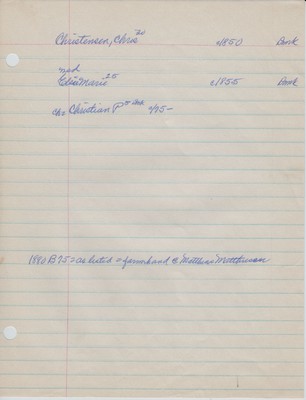 Christensen, Chris 30 c1850 Denk
md
Elsie Marie 25 c1855 Denk
ch: Christian P 4/75-
1880 B75 = as listed = farmhand of Matthias Matthiesen